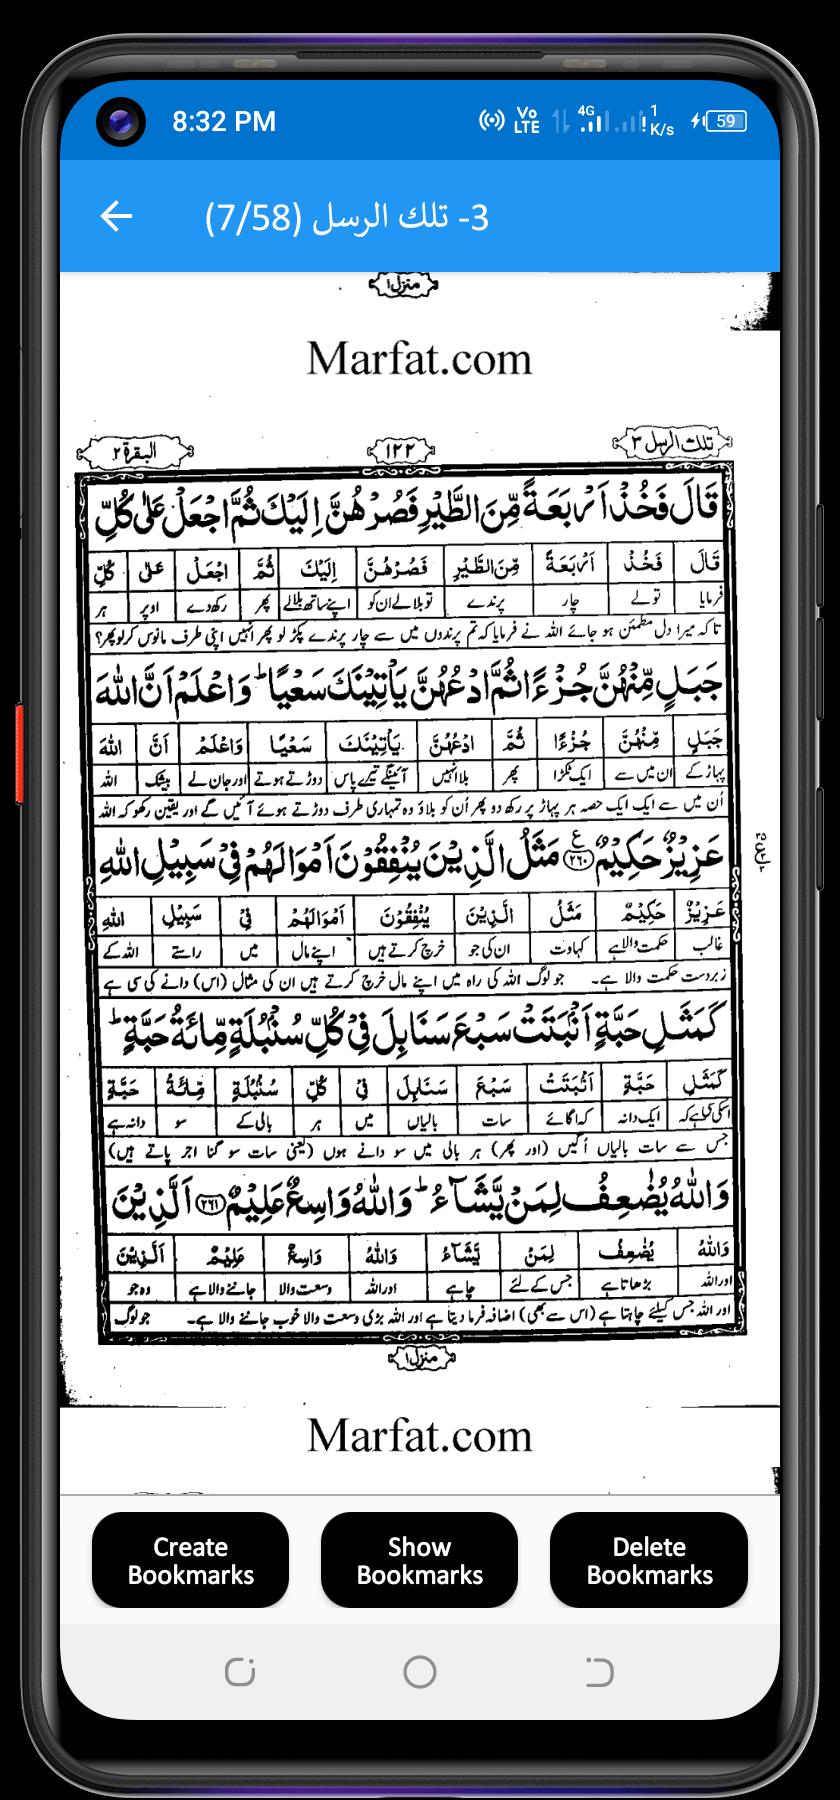 8:32 PM
Vo LTE 4G 1 K/s 59
3- تلك الرسل (7/58)
منزل۱
Marfat.com
تلك الرسل ۳ ۱۲۲ البقرة ۲
قَالَ فَخُذْ اَرْبَعَةً مِّنَ الطَّيْرِ فَصُرْهُنَّ اِلَيْكَ ثُمَّ اجْعَلْ عَلٰى كُلِّ
قَالَ فَخُذْ اَرْبَعَةً مِّنَ الطَّيْرِ فَصُرْهُنَّ اِلَيْكَ ثُمَّ اجْعَلْ عَلٰى كُلِّ
فرمایا تولے چار پرندے توبلالے ان کو اپنے ساتھ ہلالے پھر رکھ دے اوپر ہر
تاکہ میرا دل مطمئن ہو جائے اللہ نے فرمایا کہ تم پرندوں میں سے چار پرندے پکڑ لو پھر انہیں اپنی طرف مانوس کرلو پھر؟
جَبَلٍ مِّنْهُنَّ جُزْءًا ثُمَّ ادْعُهُنَّ يَاْتِيْنَكَ سَعْيًا ؕ وَاعْلَمْ اَنَّ اللّٰهَ
جَبَلٍ مِّنْهُنَّ جُزْءًا ثُمَّ ادْعُهُنَّ يَاْتِيْنَكَ سَعْيًا وَاعْلَمْ اَنَّ اللّٰهَ
پہاڑ کے ان میں سے ایک ٹکڑا پھر بلا انہیں آئینگے تیرے پاس دوڑتے ہوئے اور جان لے بیشک اللہ
اُن میں سے ایک ایک حصہ ہر پہاڑ پر رکھ دو پھر اُن کو بلاؤ وہ تمہاری طرف دوڑتے ہوئے آئیں گے اور یقین رکھو کہ اللہ
عَزِيْزٌ حَكِيْمٌ ﴿۲۶۰﴾ ع مَثَلُ الَّذِيْنَ يُنْفِقُوْنَ اَمْوَالَهُمْ فِيْ سَبِيْلِ اللّٰهِ
عَزِيْزٌ حَكِيْمٌ مَثَلُ الَّذِيْنَ يُنْفِقُوْنَ اَمْوَالَهُمْ فِيْ سَبِيْلِ اللّٰهِ
غالب حکمت والا ہے کہاوت ان کی جو خرچ کرتے ہیں اپنے مال میں راستے اللہ کے
زبردست حکمت والا ہے۔ جو لوگ اللہ کی راہ میں اپنے مال خرچ کرتے ہیں ان کی مثال (اس) دانے کی سی ہے
كَمَثَلِ حَبَّةٍ اَنْۢبَتَتْ سَبْعَ سَنَابِلَ فِيْ كُلِّ سُنْۢبُلَةٍ مِّائَةُ حَبَّةٍ ؕ
كَمَثَلِ حَبَّةٍ اَنْۢبَتَتْ سَبْعَ سَنَابِلَ فِيْ كُلِّ سُنْۢبُلَةٍ مِّائَةُ حَبَّةٍ
اسکی سی ہے کہ ایک دانہ کہ اگائے سات بالیاں میں ہر بالی کے سو دانہ ہے
جس سے سات بالیاں اُگیں (اور پھر) ہر بالی میں سو دانے ہوں (یعنی سات سو گنا اجر پاتے ہیں)
وَاللّٰهُ يُضٰعِفُ لِمَنْ يَّشَآءُ ؕ وَاللّٰهُ وَاسِعٌ عَلِيْمٌ ﴿۲۶۱﴾ اَلَّذِيْنَ
وَاللّٰهُ يُضٰعِفُ لِمَنْ يَّشَآءُ وَاللّٰهُ وَاسِعٌ عَلِيْمٌ اَلَّذِيْنَ
اور اللہ بڑھاتا ہے جس کے لئے چاہے اور اللہ وسعت والا جاننے والا ہے وہ جو
اور اللہ جس کیلئے چاہتا ہے (اس سے بھی) اضافہ فرما دیتا ہے اور اللہ بڑی وسعت والا خوب جاننے والا ہے۔ جو لوگ
منزل۱
Marfat.com
Create Bookmarks
Show Bookmarks
Delete Bookmarks